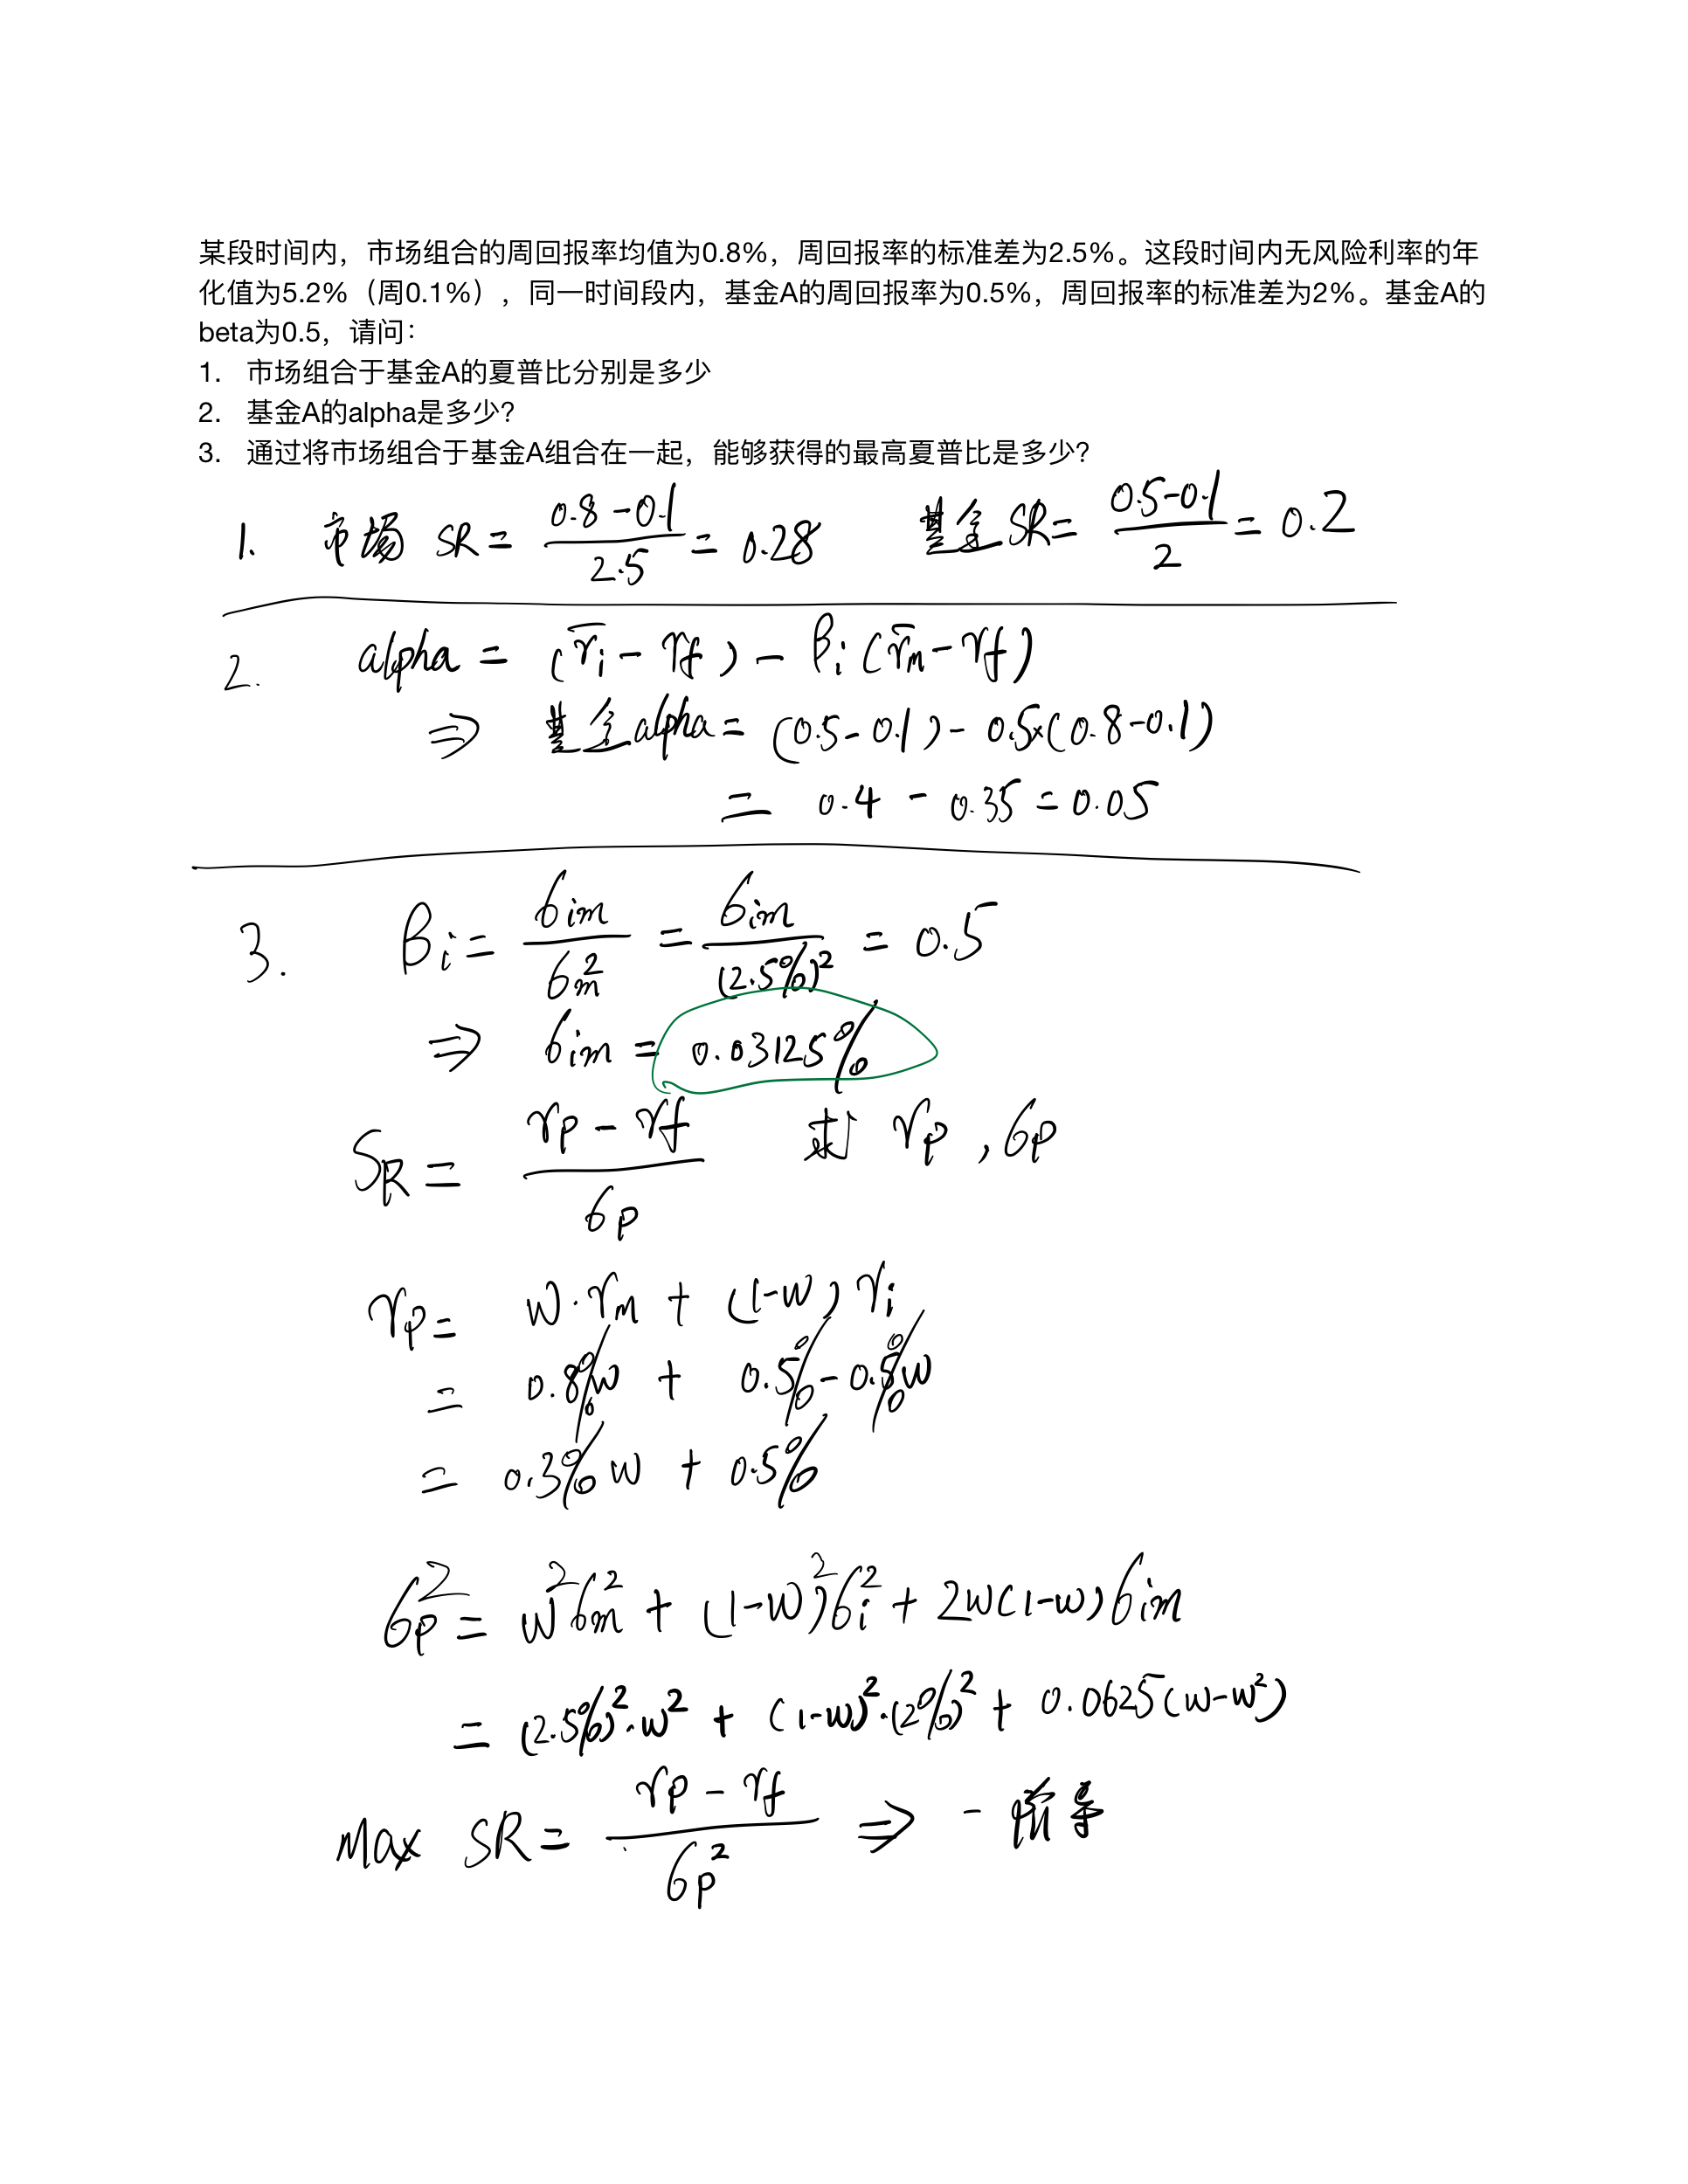 某段时间内，市场组合的周回报率均值为0.8%，周回报率的标准差为2.5%。这段时间内无风险利率的年
化值为5.2%（周0.1%），同一时间段内，基金A的周回报率为0.5%，周回报率的标准差为2%。基金A的
beta为0.5，请问：
1. 市场组合于基金A的夏普比分别是多少
2. 基金A的alpha是多少？
3. 通过将市场组合于基金A组合在一起，能够获得的最高夏普比是多少？
1. 市场 SR = (0.8-0.1)/2.5 = 0.28 基金 SR = (0.5-0.1)/2 = 0.2
2. alpha = (r̄i - rf) - βi (r̄m - rf)
⇒ 基金alpha = (0.5-0.1) - 0.5×(0.8-0.1)
= 0.4 - 0.35 = 0.05
3. βi = σim/σm² = σim/(2.5%)² = 0.5
⇒ σim = 0.03125%
SR = (rp - rf)/σp 求 rp, σp
rp = w·rm + (1-w) ri
= 0.8%w + 0.5% - 0.5%w
= 0.3%w + 0.5%
σp² = w²σm² + (1-w)²σi² + 2w(1-w)σim
= (2.5%)²·w² + (1-w)²·(2%)² + 0.0625(w-w²)
Max SR = (rp - rf)/σp² ⇒ 一阶导